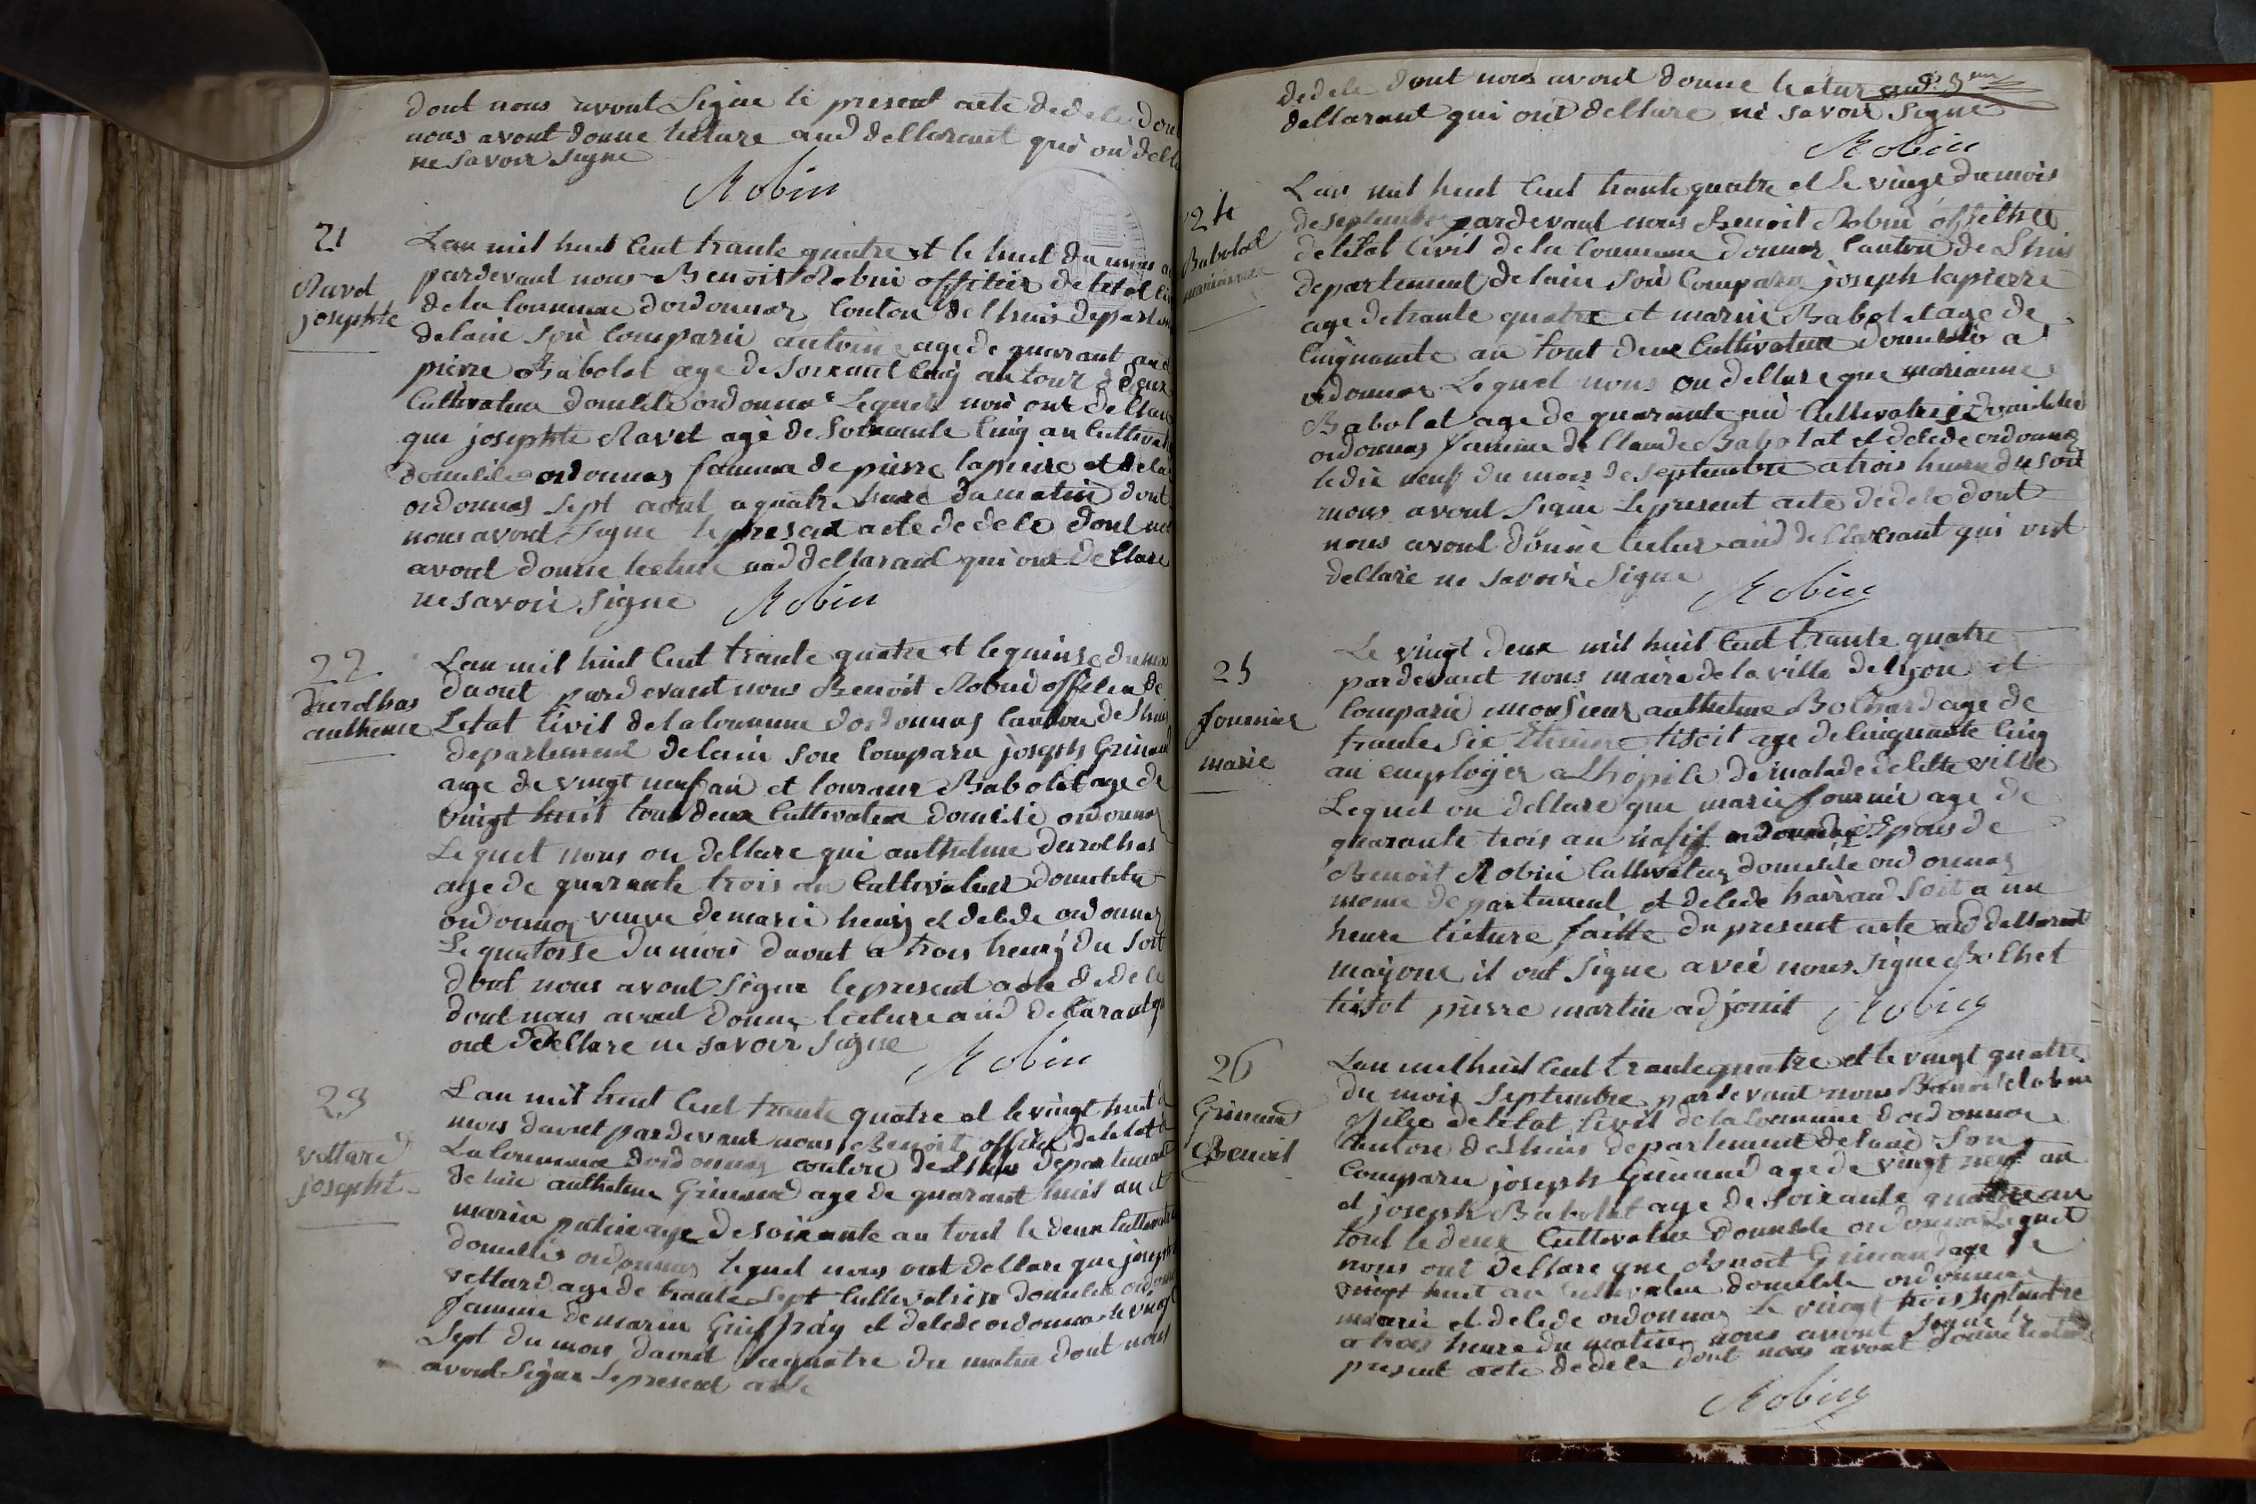 dont nous avont Signe le present acte dedele dont
nous avont donne lecture aud dellarant qui on dell
ne savoir signe
Robin
21
Ravet
josephte
Lan mil huit Cent trante quatre et le huit du mois
pardevant nous Benoit Robin offitier de letat Civ
de la Commune dordonnaz Conton de lhuis departem
delain Son Comparu antoine age de quarant an et
pierre Babolat age de Soixant Cinq an tout deux
Cultivateur domilile ordonnas Lequel nou ont dellare
que josephte Ravet agé de Soixante Cinq an Cultivat
domilile ordonnas famme de pierre lapierre et delede
ordonnas Sept aout a quatre heure du matin dont
nous avont Signe le present acte dedele dont nous
avont donne lecture aud dellarant qui ont dellare
ne savoir Signe Robin
22
durolhas
anthelme
Lan mil huit Cent trante quatre et le quinse du mois
daout pardevant nous Benoit Robin offilier de
Letat Civil de la Commune dordonnas Canton de Lhuis
departement delain Son Comparu joseph Grinand
age de vingt neuf an et lourant Babolat age de
vingt huit tout deux Cultivateur domilié ordonnas
Lequel nous on dellare qui anthelme durolhas
age de quarante trois an Cultivateur domilile
ordonnaz veuve de marie henry et delede ordonnaz
Le quatorse du mois daout a trois heure du Soit
dont nous avont Signe le present acte dedele
dont nous avont donne lecture aud dellarant qui
ont dellare ne savoir Signe
Robin
23
vettard
josepht
Lan mil huit Cent trante quatre et le vingt huit du
mois daout pardevant nous Benoit offilier de letat
La Commune dordonnaz conton de Lhuis departement
de lain anthelme Grinand age de quarant huit an et
marin age de soixante an tout le deux Cultivateur
domilies ordonnas lequel nous ont dellare que josepht
vettard age de trante Sept Cultivatrise domilile ordonna
famme de marin Guiffray et delede ordonnas le vingt
Sept du mois daout a quatre du matin dont nous
avont Signe Le present acte
dedele dont nous avont donne lectur aud
dellarant qui ont dellare ne savoir Signe
Robin
24
Babolat
marianne
Lan mil huit Cent trante quatre et Le vingt du mois
de septembre pardevant nous Benoit Robin offilier
de letat Civil de la Commune donnas Canton de Lhuis
departement de lain Son Comparu joseph lapierre
age de trante quatre et marin Babolat age de
Cinquante an tout deux Cultivateur domilié a
ordonnas Lequel nous on dellare que marianne
Babolat age de quarante an Cultivatrise domilié
ordonnas famme de Claude Babolat et delede ordonnaz
le dix neuf du mois de septembre a trois heure du soit
nous avont Signe Le present acte dedele dont
nous avont donne lectur aud dellarant qui ont
dellare ne savoir Signe
Robin
25
fournier
marie
Le vingt deux mil huit Cent trante quatre
pardevant nous maire de la ville de lyon et
Comparu monsieur anthelme age de
trante Six Etienne tisoit age de Cinquante Cinq
an employer a Lhopile de malade de lette ville
Lequel on dellare que marie fournie age de
quarante trois an natif ordonnaz Epous de
Benoit Robin Cultivateur domilile ordonnaz
meme departement et delede soit a un
heure lecture faitte du present acte aud dellarant
mayeur il ont Signe avec nous Signe Bolhet
tissot pierre martin adjoint Robin
26
Grinand
Benoit
Lan mil huit Cent trante quatre et le vingt quatre
du mois Septembre pardevant nous Benoit Robin
offilier de letat Civil de la Commune dordonnas
Canton de Lhuis departement de lain Son
Comparu joseph Grinand age de vingt neuf an
et joseph Babolat age de Soixante quatre an
tout le deux Cultivateur domilile ordonnas Lequel
nous ont dellare que Benoit Grinand age de
vingt huit an Cultivateur domilile ordonnas
marie et delede ordonnas Le vingt trois septembre
a trois heure du matin nous avont Signe le
present acte dedele dont nous avont donne lectur
Robin